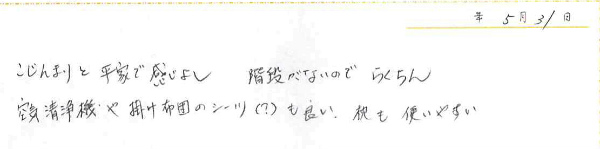 年 5月31日
こじんまりと 平家で感じよし 階段がないので らくちん
空気清浄機や掛け布団のシーツ(?)も良い、枕も 使いやすい